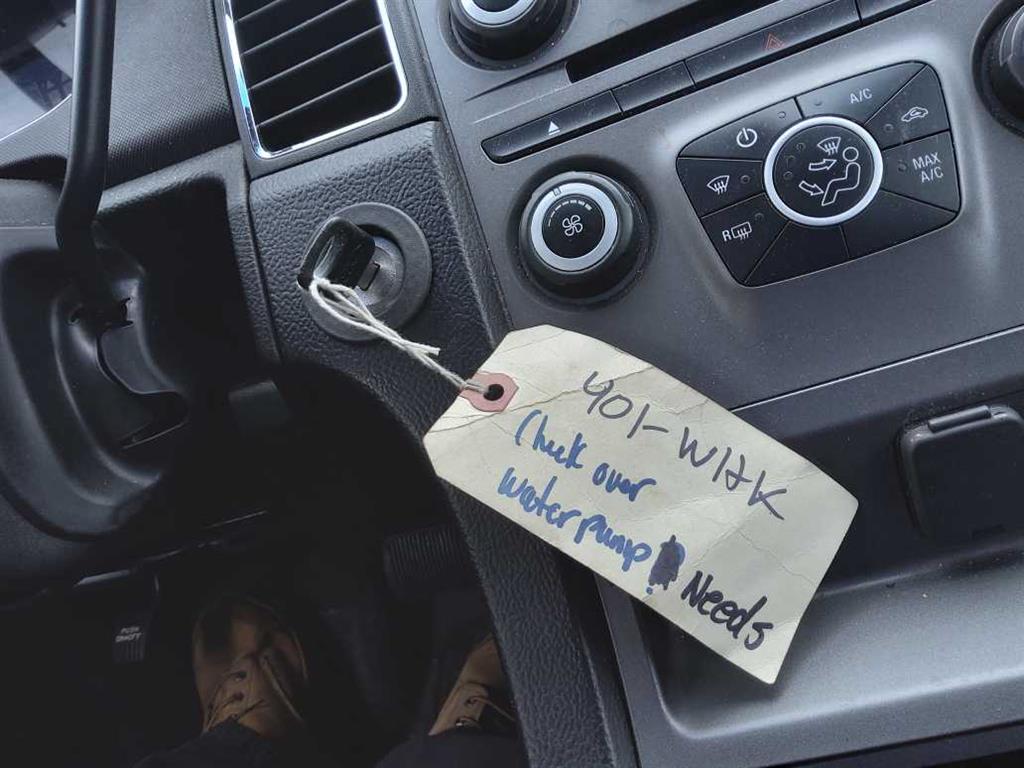 A/C
MAX
A/C
R
401-WHK
Check over
water pump
Needs
PUSH
ON/OFF